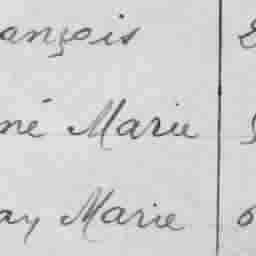 ançois
né Marie
ay Marie